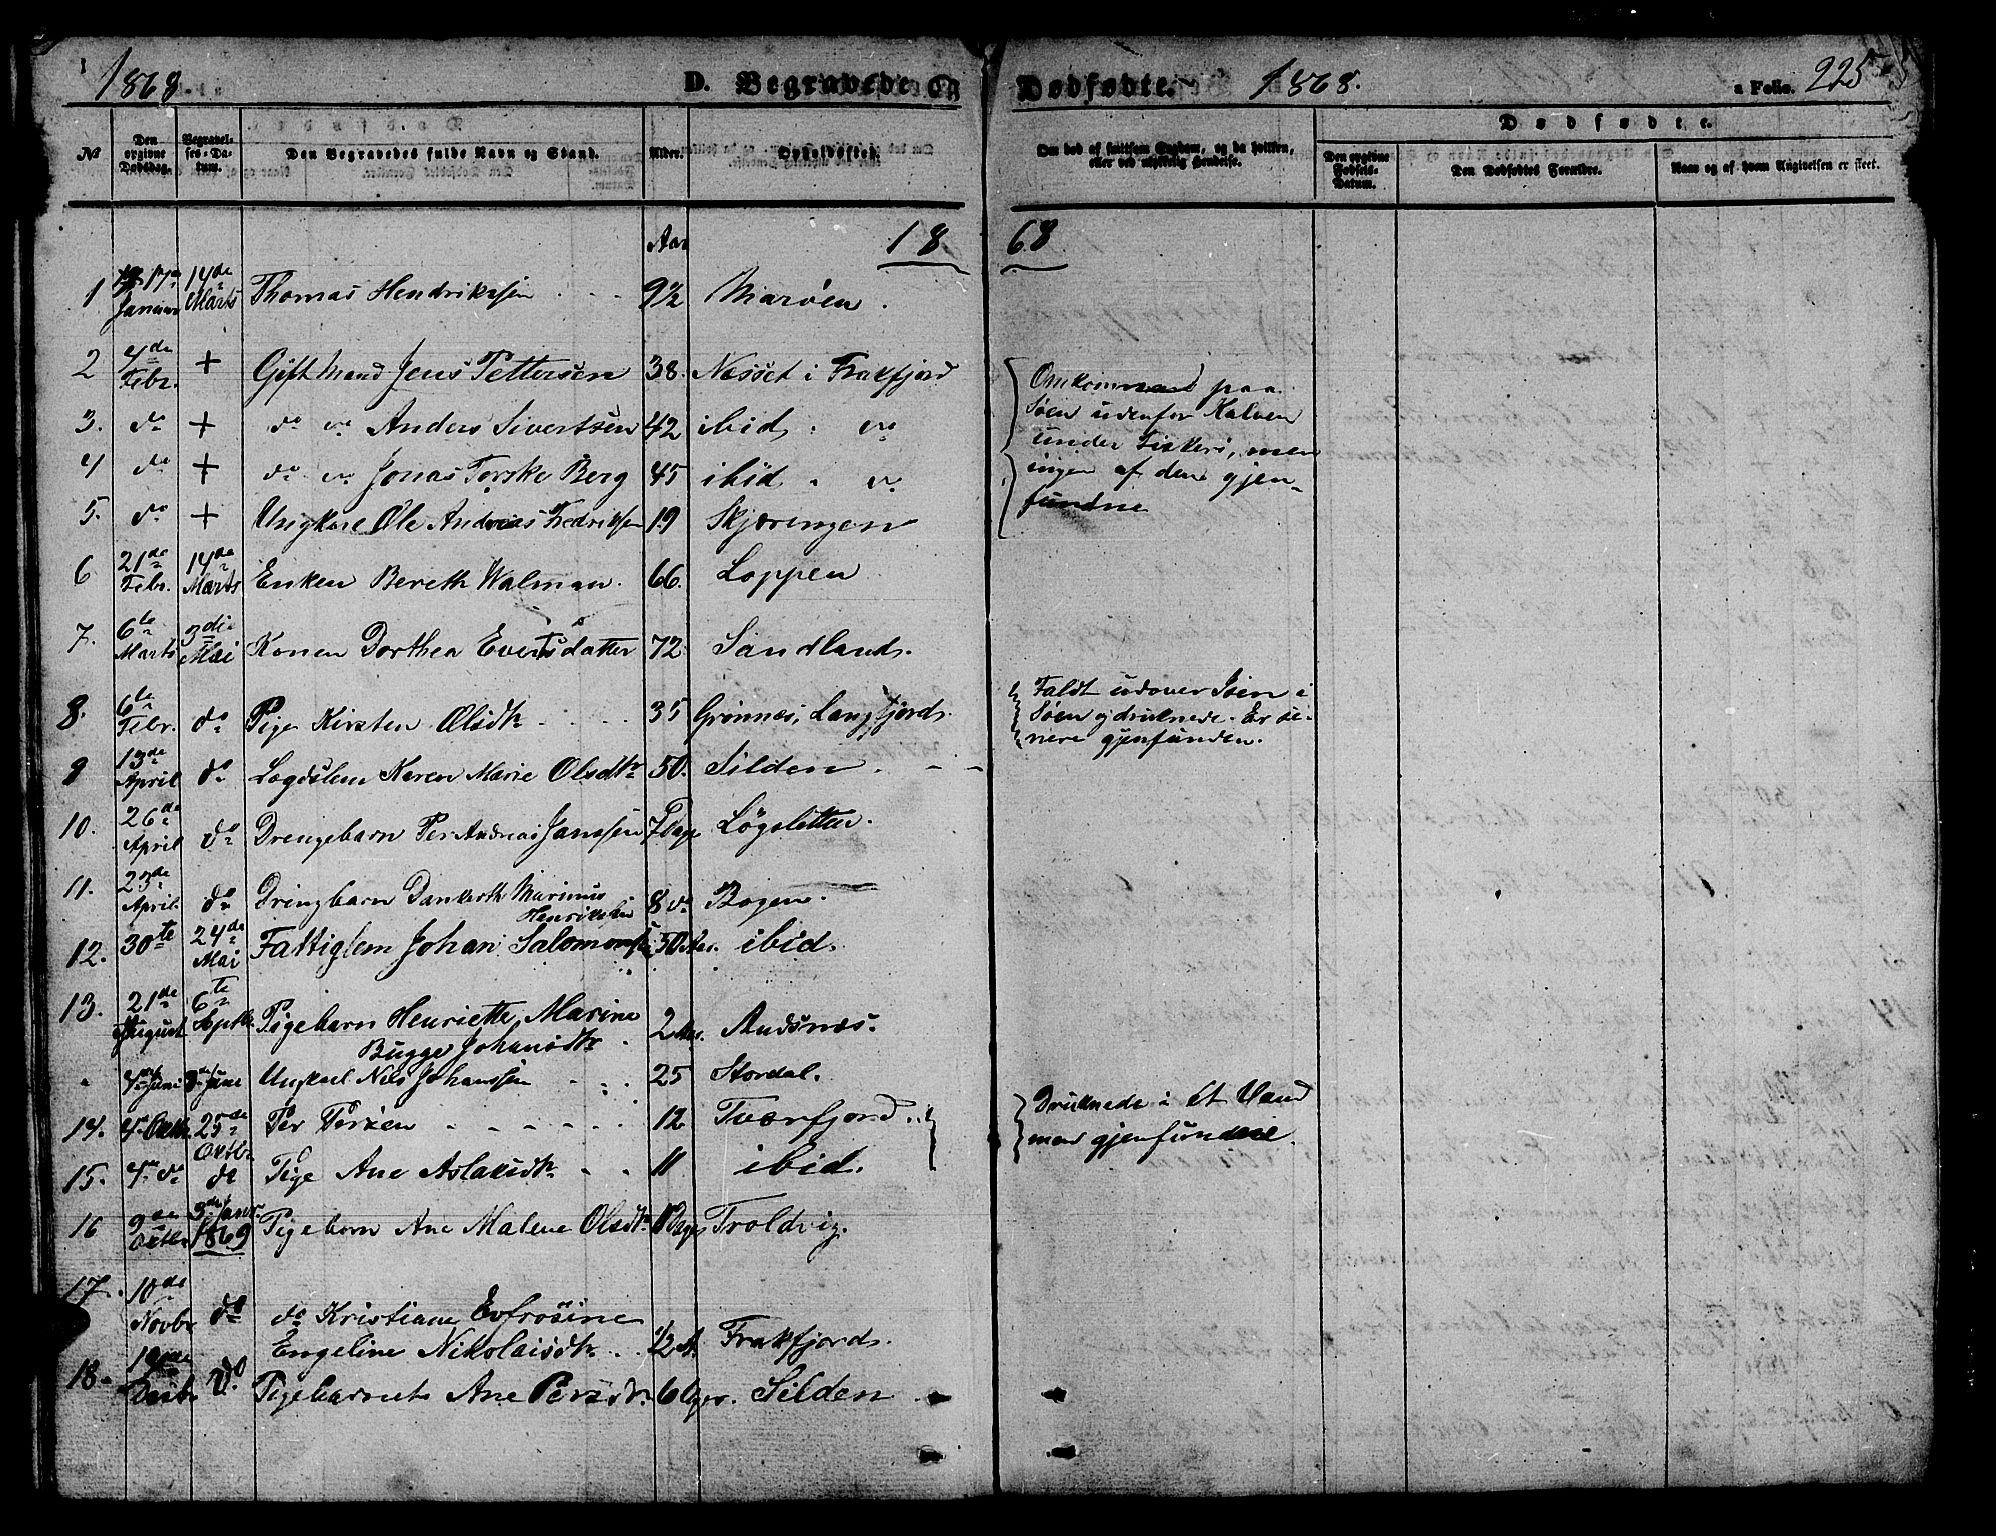 1868. D. Begravede og Dødfødte. 1868. a Folio. 225
No
Den opgivne Dødsdag.
Begravelses-Datum.
Den Begravedes fulde Navn og Stand.
Alder.
Opholdssted.
Om død af smitsom Sygdom, og da hvilken, eller ved ulykkelig Hendelse.
Dødfødte.
Den opgivne Fødsels-Datum.
Den Dødfødtes Forældre.
Naar og af hvem Angivelsen er skeet.
Aar 18 68
1 17de Januar 14de Marts Thomas Hendriksen 9 1/2 Marøen
2 4de Febr. + Gift Mand Jens Pettersen 38. Næsset i Frakfjord
3. do + do do Anders Sivertsen 42 ibid. do
4 do + do do Jonas Torske Berg 45 ibid do
5. do + Ungkarl Ole Andreas Fredriksen 19 Skjæringen
Omkommet paa
Søen udenfor Kalven
under Fiskeri, men
ingen af dem gjen-
fundne
6 21de Febr. 14de Marts Enken Bereth Walman. 66. Loppen
7. 6te Marts 3die Mai Konen Dorthea Evertsdatter 72 Sandland.
8. 6te Febr. do Pige Kirsten Olsdtr 35 Grønnæs, Langfjord.
Faldt udover Isen i
Søen og druknede. Er se-
nere gjenfunden.
9 13de April do Lægdslem Karen Marie Olsdtr 50. Silden
10. 26de April do Drengebarn Per Andreas Janssen 7 Dage Løgsletten.
11. 23de April. do Drengbarn Dankerth Marinus
Henriksen 8 do Bogen.
12. 30te 24de Mai Fattiglem Johan Salomonsen 50 Aar. ibid.
13. 21de August 6te Septbr Pigebarn Henriette Marine
Bugge Johansdtr 2 Aar. Andsnæs.
4de Juni 8de Juni Ungkarl Nils Johanssen 25 Stordal.
14. 4de Oktbr. 25de Oktbr Per Persen 12 Tverfjord.
15. 4de do do Pige Ane Aslaksdtr 11 ibid.
Druknede i et Vand
men gjenfundne.
16 9de Oktbr 3de Janr. 1869 Pigebarn Ane Malene Olsdtr. Dage Troldvig.
17. 10de Novbr do do Kristiane Evfrosine
Engeline Nikolaisdtr. 1/2 A. Frakfjord.
18. Desbr do Pigebarnet Ane Persdtr 6 Dger. Silden